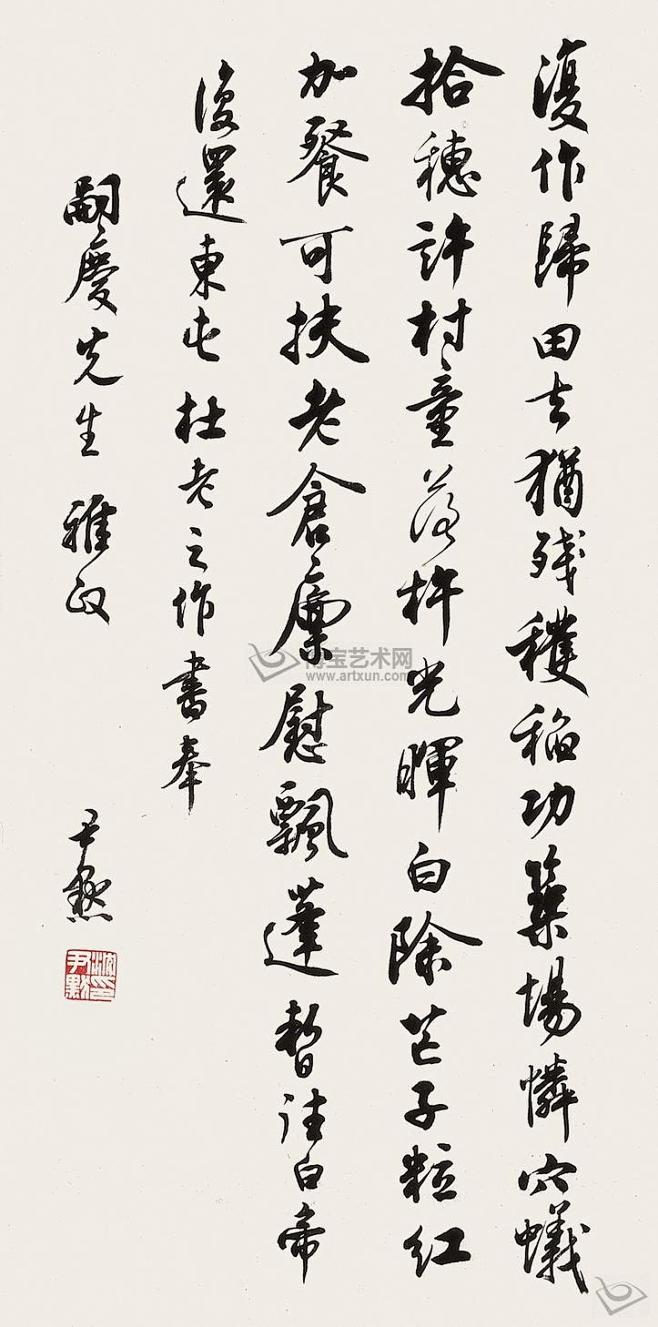 復作歸田去猶殘穫稻功築場憐穴蟻
拾穗許村童落杵光暉白除芒子粒紅
加餐可扶老倉廩慰飄蓬暫往白帝
復還東屯杜老之作書奉
嗣慶先生雅政
尹默
沈尹默印
博宝艺术网
www.artxun.com